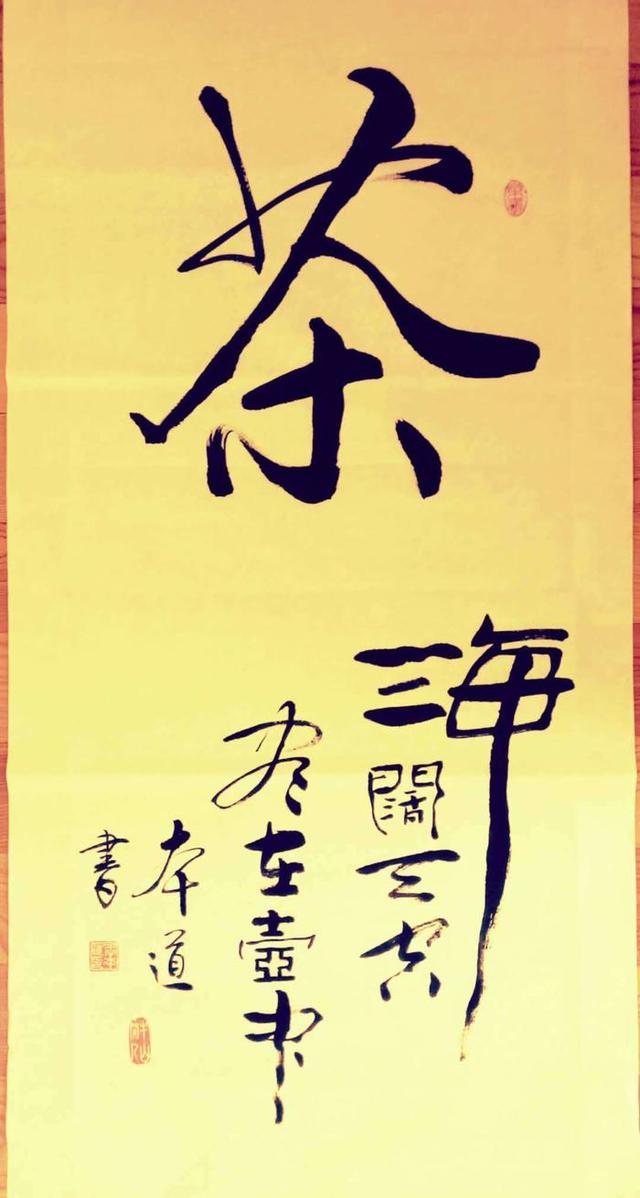 茶
海闊天空
尽在壺中
本道
書